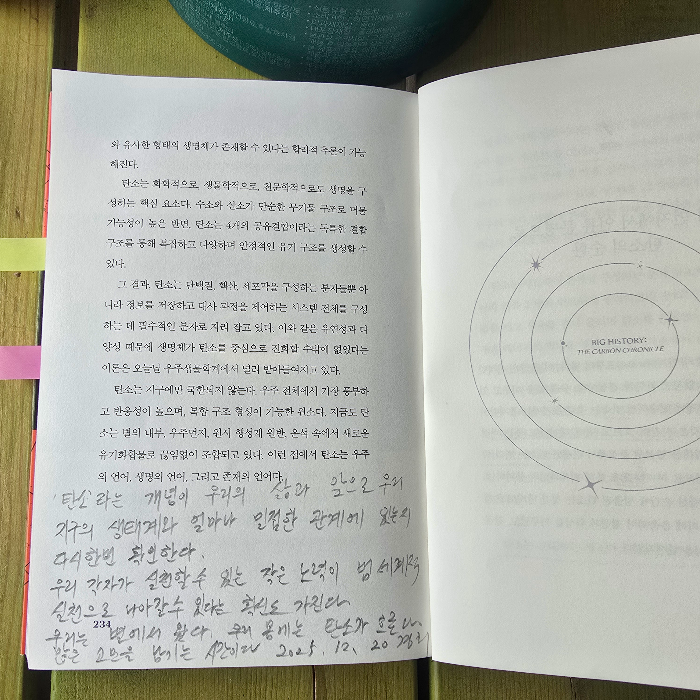 와 유사한 형태의 생명체가 존재할 수 있다는 합리적 추론이 가능
해진다.
탄소는 화학적으로, 생물학적으로, 천문학적으로도 생명을 구
성하는 핵심 요소다. 수소와 산소가 단순한 무기물 구조로 머물
가능성이 높은 반면, 탄소는 4개의 공유결합이라는 독특한 결합
구조를 통해 복잡하고 다양하며 안정적인 유기 구조를 생성할 수
있다.
그 결과, 탄소는 단백질, 핵산, 세포막을 구성하는 분자들뿐 아
니라 정보를 저장하고 대사 과정을 제어하는 시스템 전체를 구성
하는 데 필수적인 분자로 자리 잡고 있다. 이와 같은 유연성과 다
양성 때문에 생명체가 탄소를 중심으로 진화할 수밖에 없었다는
이론은 오늘날 우주생물학계에서 널리 받아들여지고 있다.
탄소는 지구에만 국한되지 않는다. 우주 전체에서 가장 풍부하
고 반응성이 높으며, 복합 구조 형성이 가능한 원소다. 지금도 탄
소는 별의 내부, 우주먼지, 원시 행성계 원반, 운석 속에서 새로운
유기화합물로 끊임없이 조합되고 있다. 이런 점에서 탄소는 우주
의 언어, 생명의 언어, 그리고 존재의 언어다.
'탄소'라는 개념이 우리의 삶과 앞으로 우리
지구의 생태계와 얼마나 밀접한 관계에 있는지
다시한번 확인한다.
우리 각자가 실천할수 있는 작은 노력이 범세계적
실천으로 나아갈수 있다는 확신도 가진다.
234
우리는 별에서 왔다. 우리 몸에는 탄소가 흐른다.
많은 고민을 남기는 시간이다 2025. 12. 20
BIG HISTORY:
THE CARBON CHRONICLE